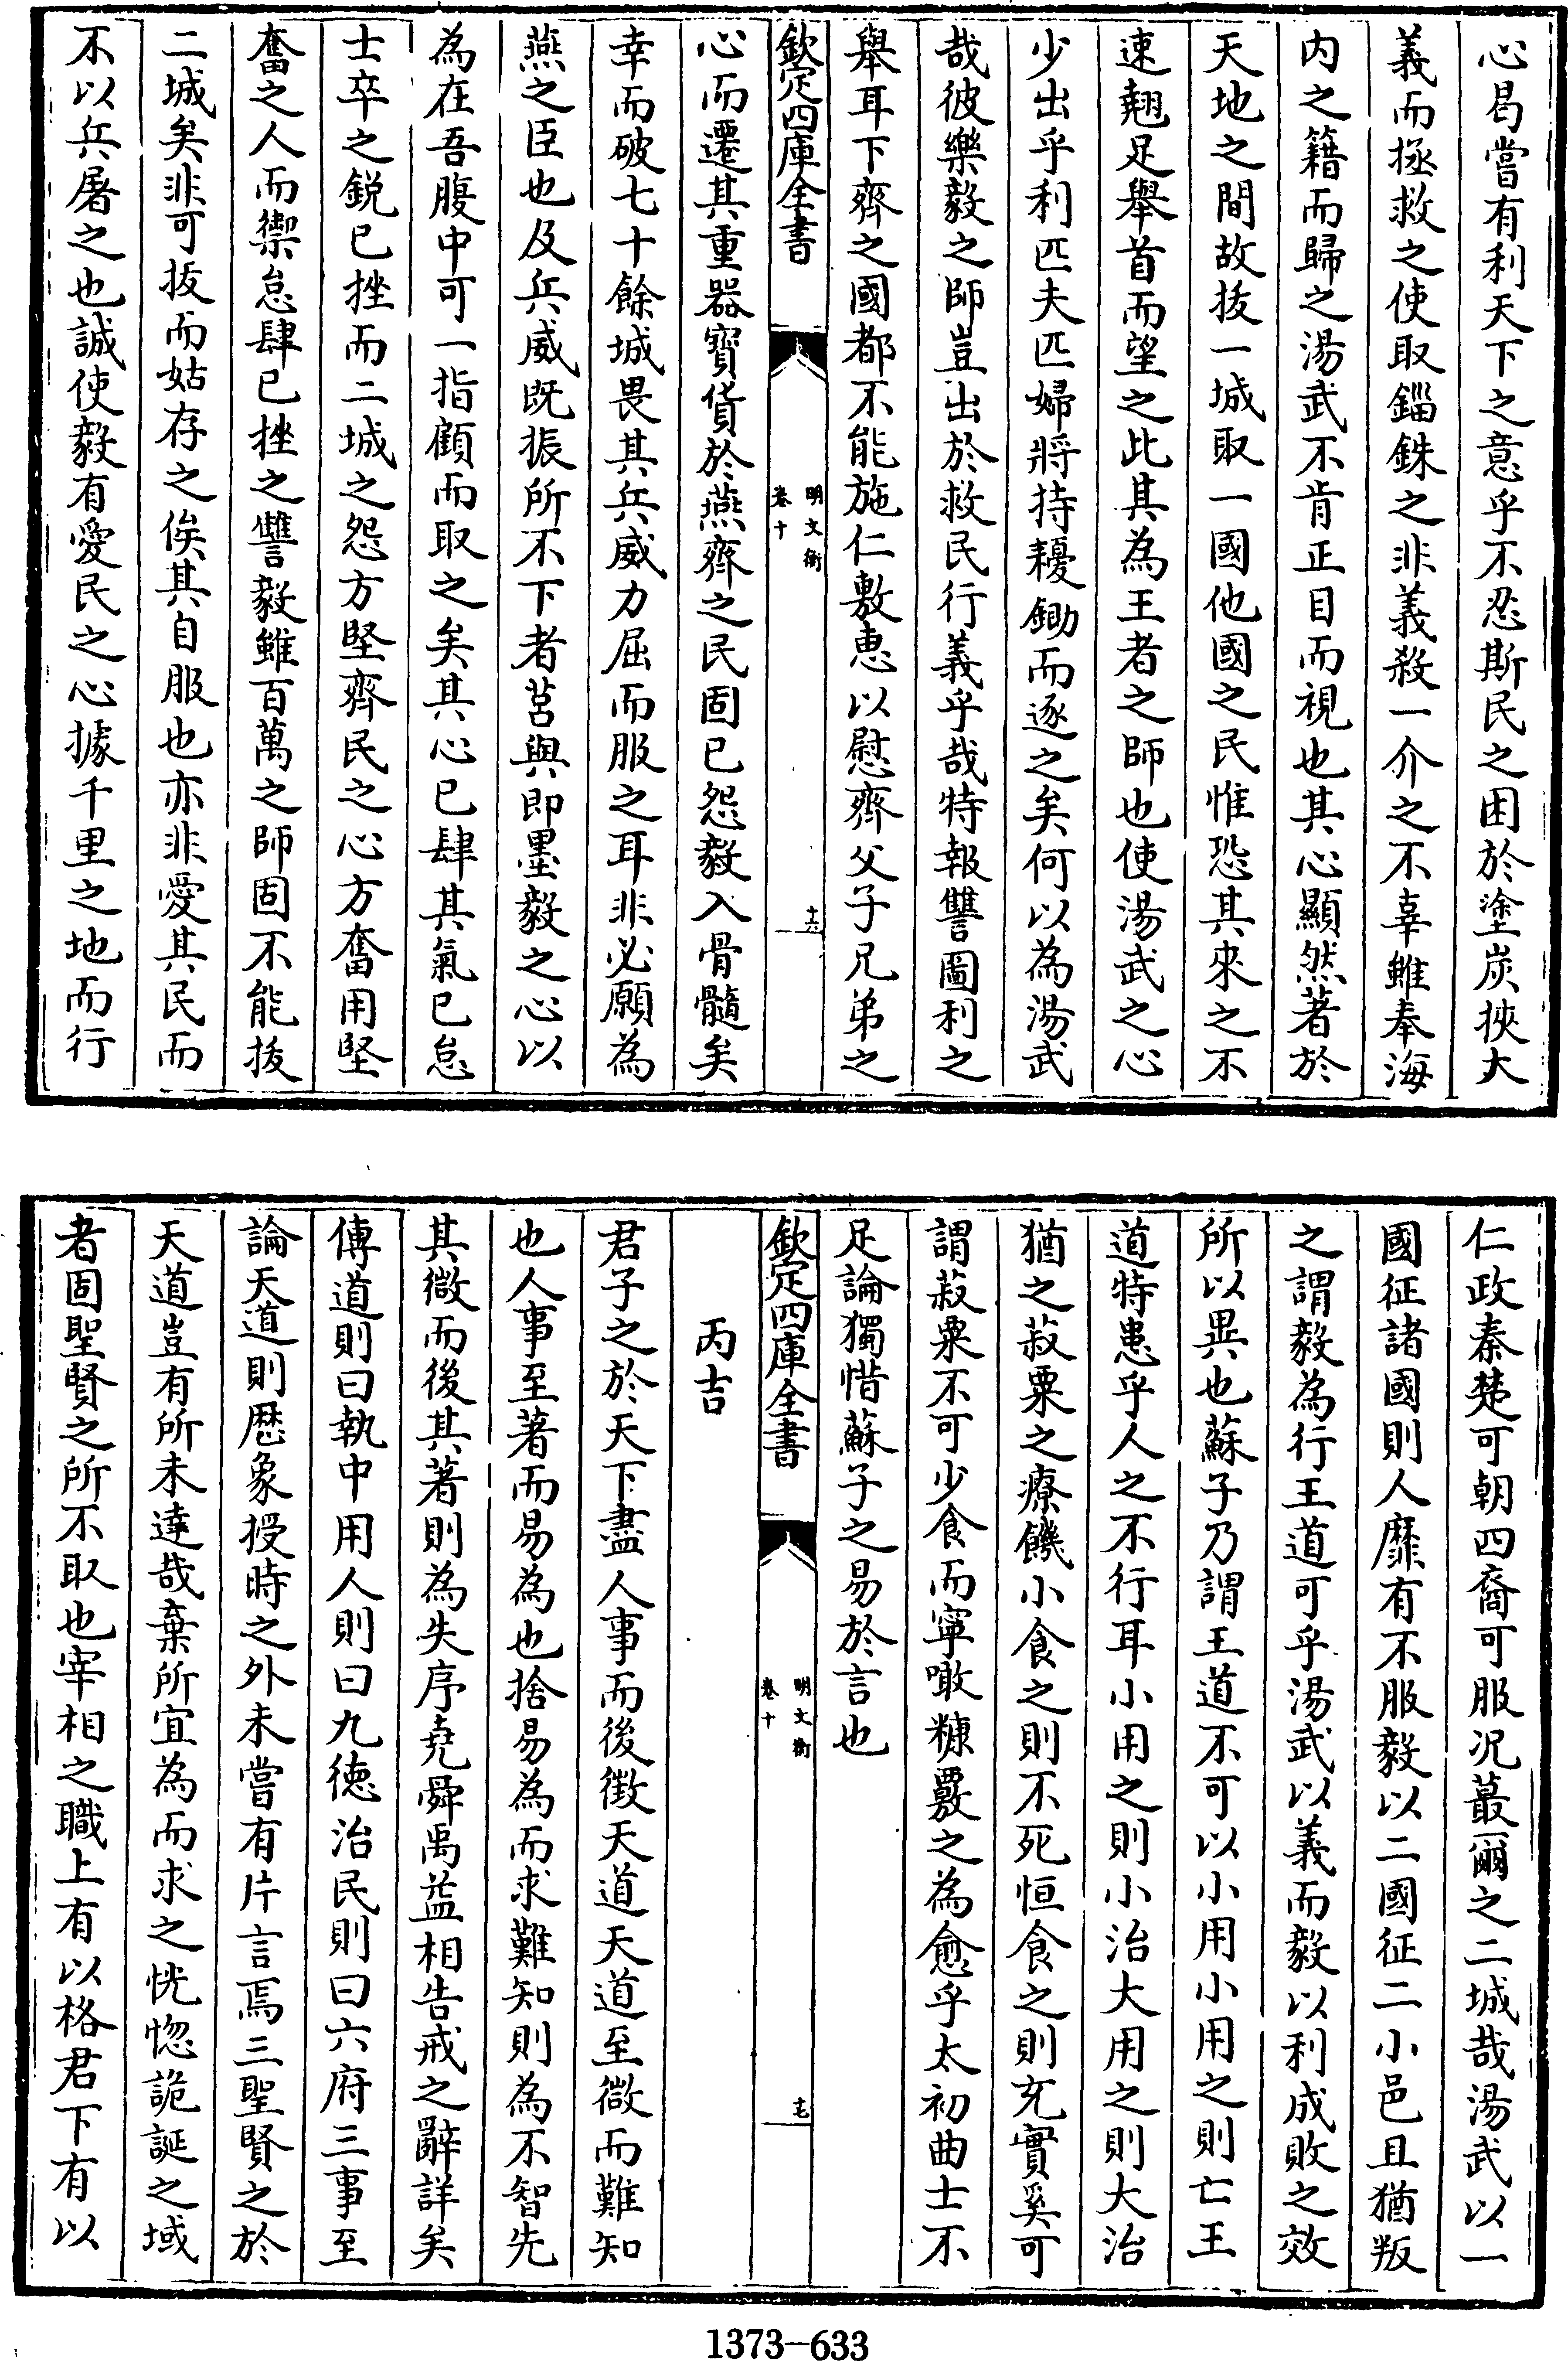 心曷嘗有利天下之意乎不忍斯民之困於塗炭挾大
義而拯救之使取錙銖之非義殺一介之不辜雖奉海
内之籍而歸之湯武不肯正目而視也其心顯然著於
天地之間故拔一城取一國他國之民惟恐其來之不
速翹足舉首而望之此其為王者之師也使湯武之心
少出乎利匹夫匹婦將持耰鋤而逐之矣何以為湯武
哉彼樂毅之師豈出於救民行義乎哉特報讐圖利之
舉耳下齊之國都不能施仁敷恵以慰齊父子兄弟之
欽定四庫全書
明文衡
卷十
十六
心而遷其重器寳貨於燕齊之民固已怨毅入骨髓矣
幸而破七十餘城畏其兵威力屈而服之耳非必願為
燕之臣也及兵威既振所不下者莒與即墨毅之心以
為在吾腹中可一指顧而取之矣其心已肆其氣已怠
士卒之鋭已挫而二城之怨方堅齊民之心方奮用堅
奮之人而禦怠肆已挫之讐毅雖百萬之師固不能拔
二城矣非可拔而姑存之俟其自服也亦非愛其民而
不以兵屠之也誠使毅有愛民之心據千里之地而行
仁政秦楚可朝四裔可服况蕞爾之二城哉湯武以一
國征諸國則人靡有不服毅以二國征二小邑且猶叛
之謂毅為行王道可乎湯武以義而毅以利成敗之效
所以異也蘇子乃謂王道不可以小用小用之則亡王
道特患乎人之不行耳小用之則小治大用之則大治
猶之菽粟之療饑小食之則不死恒食之則充實奚可
謂菽粟不可少食而寧噉糠覈之為愈乎太初曲士不
足論獨惜蘇子之易於言也
欽定四庫全書
明文衡
卷十
十七
丙吉
君子之於天下盡人事而後徴天道天道至微而難知
也人事至著而易為也捨易為而求難知則為不智先
其微而後其著則為失序堯舜禹益相告戒之辭詳矣
傳道則曰執中用人則曰九徳治民則曰六府三事至
論天道則厯象授時之外未嘗有片言焉三聖賢之於
天道豈有所未達哉棄所宜為而求之恍惚詭誕之域
者固聖賢之所不取也宰相之職上有以格君下有以
1373-633